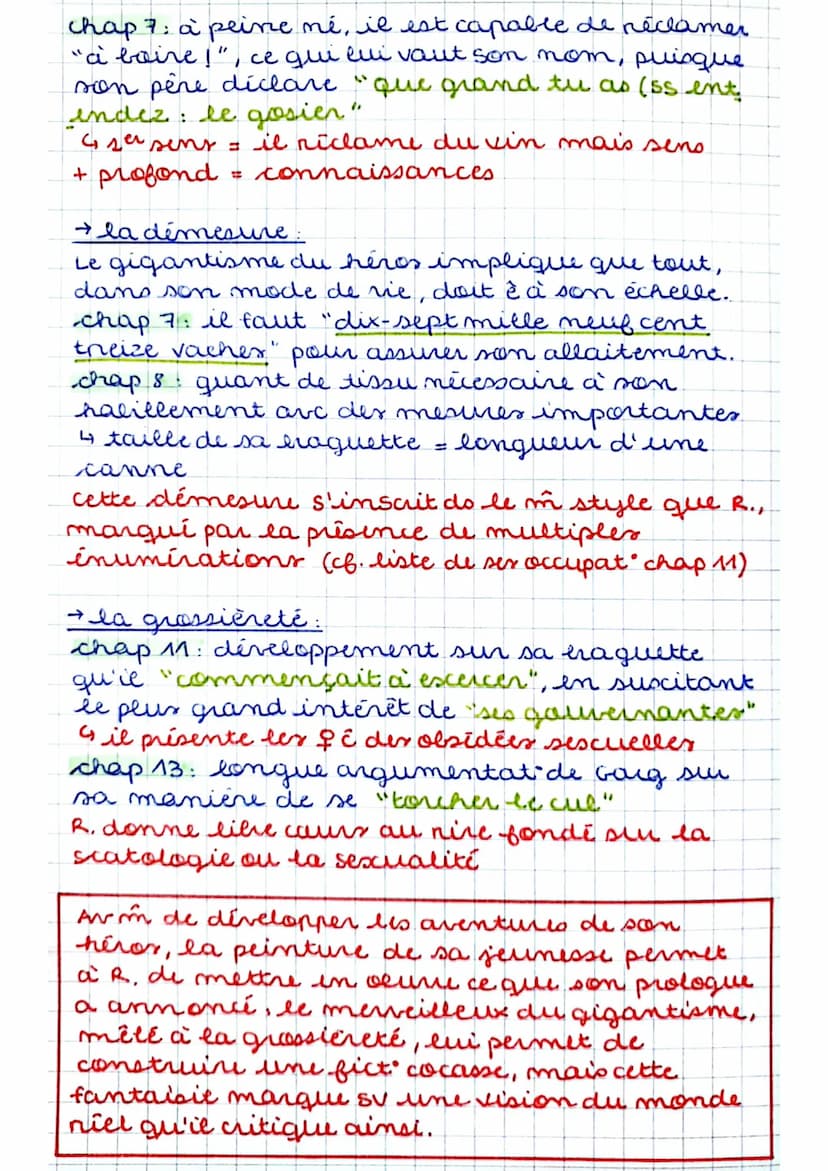 chap 7: à peine né, il est capable de réclamer
"à boire!", ce qui lui vaut son nom, puisque
son père déclare "que grand tu as (ss ent
endez : le gosier"
↳ 1er sens = il réclame du vin mais sens
+ profond = connaissances
→ la démesure :
Le gigantisme du héros implique que tout,
dans son mode de vie, doit ê à son échelle.
chap 7: il faut "dix-sept mille neuf cent
treize vaches" pour assurer son allaitement.
chap 8: quant de tissu nécessaire à son
habillement avc des mesures importantes
↳ taille de sa braguette = longueur d'une
canne
cette démesure s'inscrit ds le m̂ style que R.,
marqué par la présence de multiples
énumérations (cf. liste de ses occupat° chap 11)
→ la grossièreté :
chap 11: développement sur sa braguette
qu'il "commençait à escercer", en suscitant
le plus grand intérêt de "ses gouvernantes"
↳ il présente les ♀ c̄ des obsédées sescuelles
chap 13: longue argumentat° de Garg sur
sa manière de se "torcher le cul"
R. donne libre cours au rire fondé sur la
scatologie ou la sexualité
Av m̂ de développer les aventures de son
héros, la peinture de sa jeunesse permet
à R. de mettre en oeuvre ce que son prologue
a annoncé : le merveilleux du gigantisme,
mêlé à la grossièreté, lui permet de
construire une fict° cocasse, mais cette
fantaisie marque sv une vision du monde
réel qu'il critique ainsi.